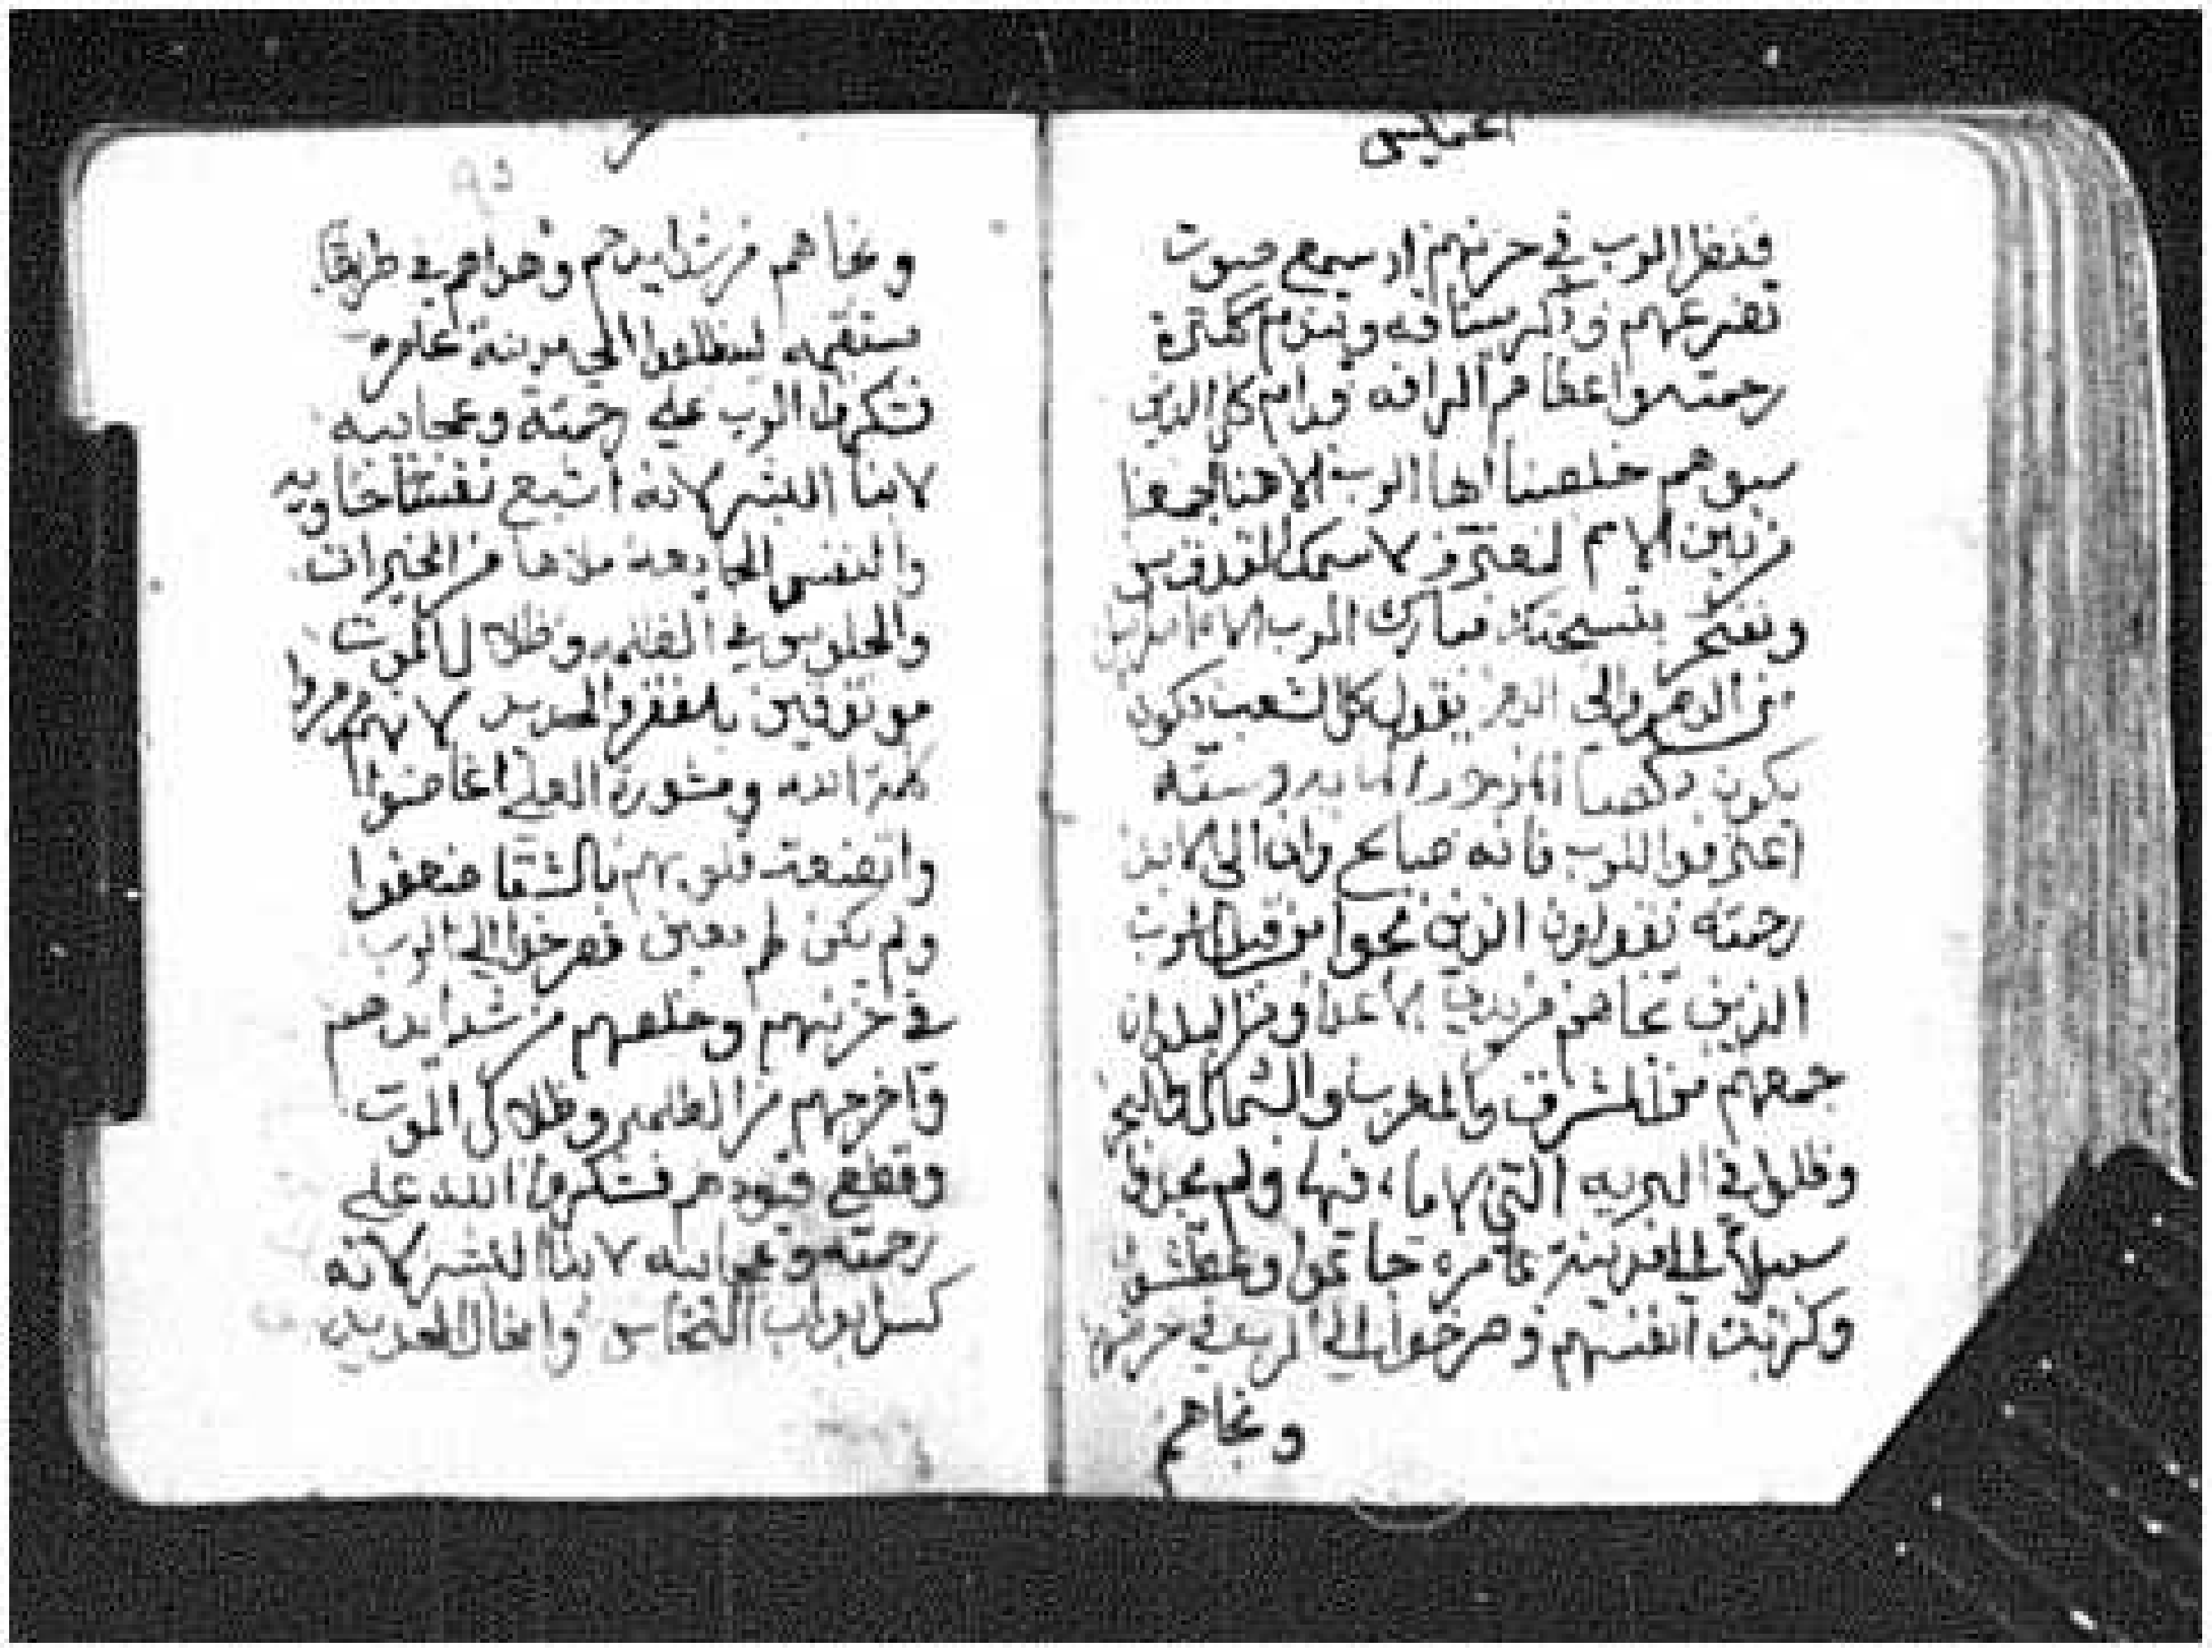 الخميس
فنظر الرب في حزنهم اذ سمع صوت
تضرعهم وذكر ميثاقه وتندم كثرة
رحمته واعطاهم الرافه قدام كل الذين
سبوهم خلصنا ايها الرب الاهنا اجمعنا
من بين الامم لنعترف لاسمك القدوس
ونفتخر بتسبحتك مبارك الرب الاه اسراييل
من الدهر والى الدهر يقول كل الشعب يكون
يكون المزمور المايه وسته
اعترفوا للرب فانه صالح وان الى الابد
رحمته يقولون الذين نجوا من قبل الرب
الذين نجاهم من يدي الاعدا ومن البلدان
جمعهم من المشرق والمغرب والشمال والبحر
وضلوا في البريه التي لا ماء فيها ولم يجدوا
سبيلا الى مدينة عامره جاعوا وعطشوا
وكربت انفسهم وصرخوا الى الرب في حزنهم
ونجاهم
٩٥
ونجاهم من شدايدهم وهداهم في طريقا
مستقيمه لينطلقوا الى مدينة عامره
فتشكروا الرب على رحمته وعجايبه
لابنا البشر لانه اشبع نفسا خاويه
والنفس الجايعه ملاها من الخيرات
والجلوس في الظلمه وظلال الموت
موثوقين بالفقر والحديد لانهم مرمروا
كلمة الله ومشورة العلي اغاضوا
واتضعت قلوبهم بالشقا ضعفوا
ولم يكن لهم معين فصرخوا الى الرب
في حزنهم وخلصهم من شدايدهم
واخرجهم من الظلمه وظلال الموت
وقطع قيودهم فتشكروا الله على
رحمته وعجايبه لابنا البشر لانه
كسر ابواب النحاس واغلال الحديد